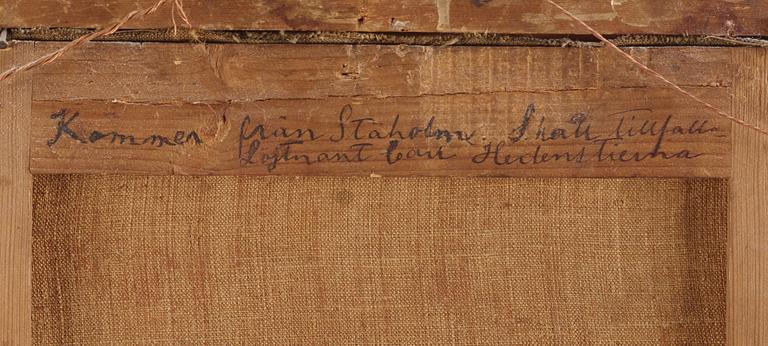 Kommer från Staholm. Skall Tillfalla
Löjtnant Carl Hedenstierna